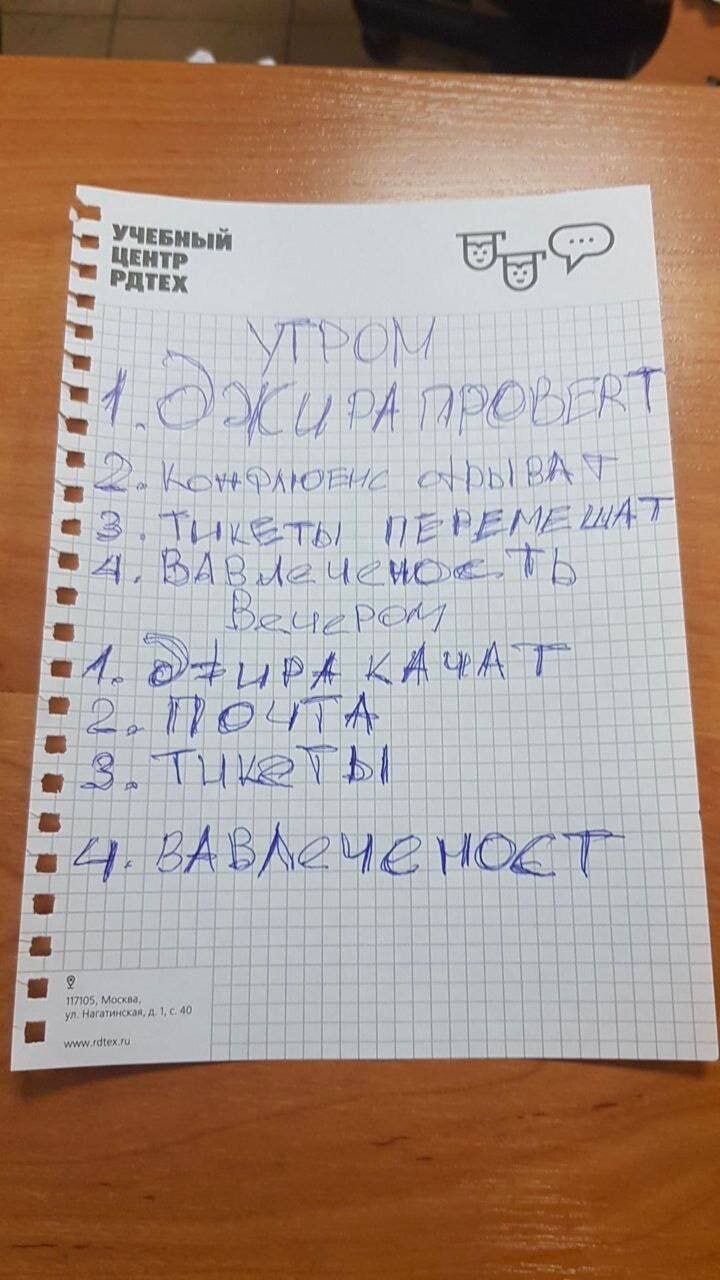 УЧЕБНЫЙ
ЦЕНТР
РДТЕХ
УТРОМ
1. ДЖИРА ПРОВЕRТ
2. КОНФЛЮЕНС ОТРЫВАТ
3. ТИКЕТЫ ПЕРЕМЕШАТ
4. ВАВЛеЧеНОСТЬ
ВечеРОМ
1. ДЖИРА КАЧАТ
2. ПОЧТА
3. ТИКеТЫ
4. ВАВЛеЧеНОСТ
117105, Москва,
ул. Нагатинская, д. 1, с. 40
www.rdtex.ru